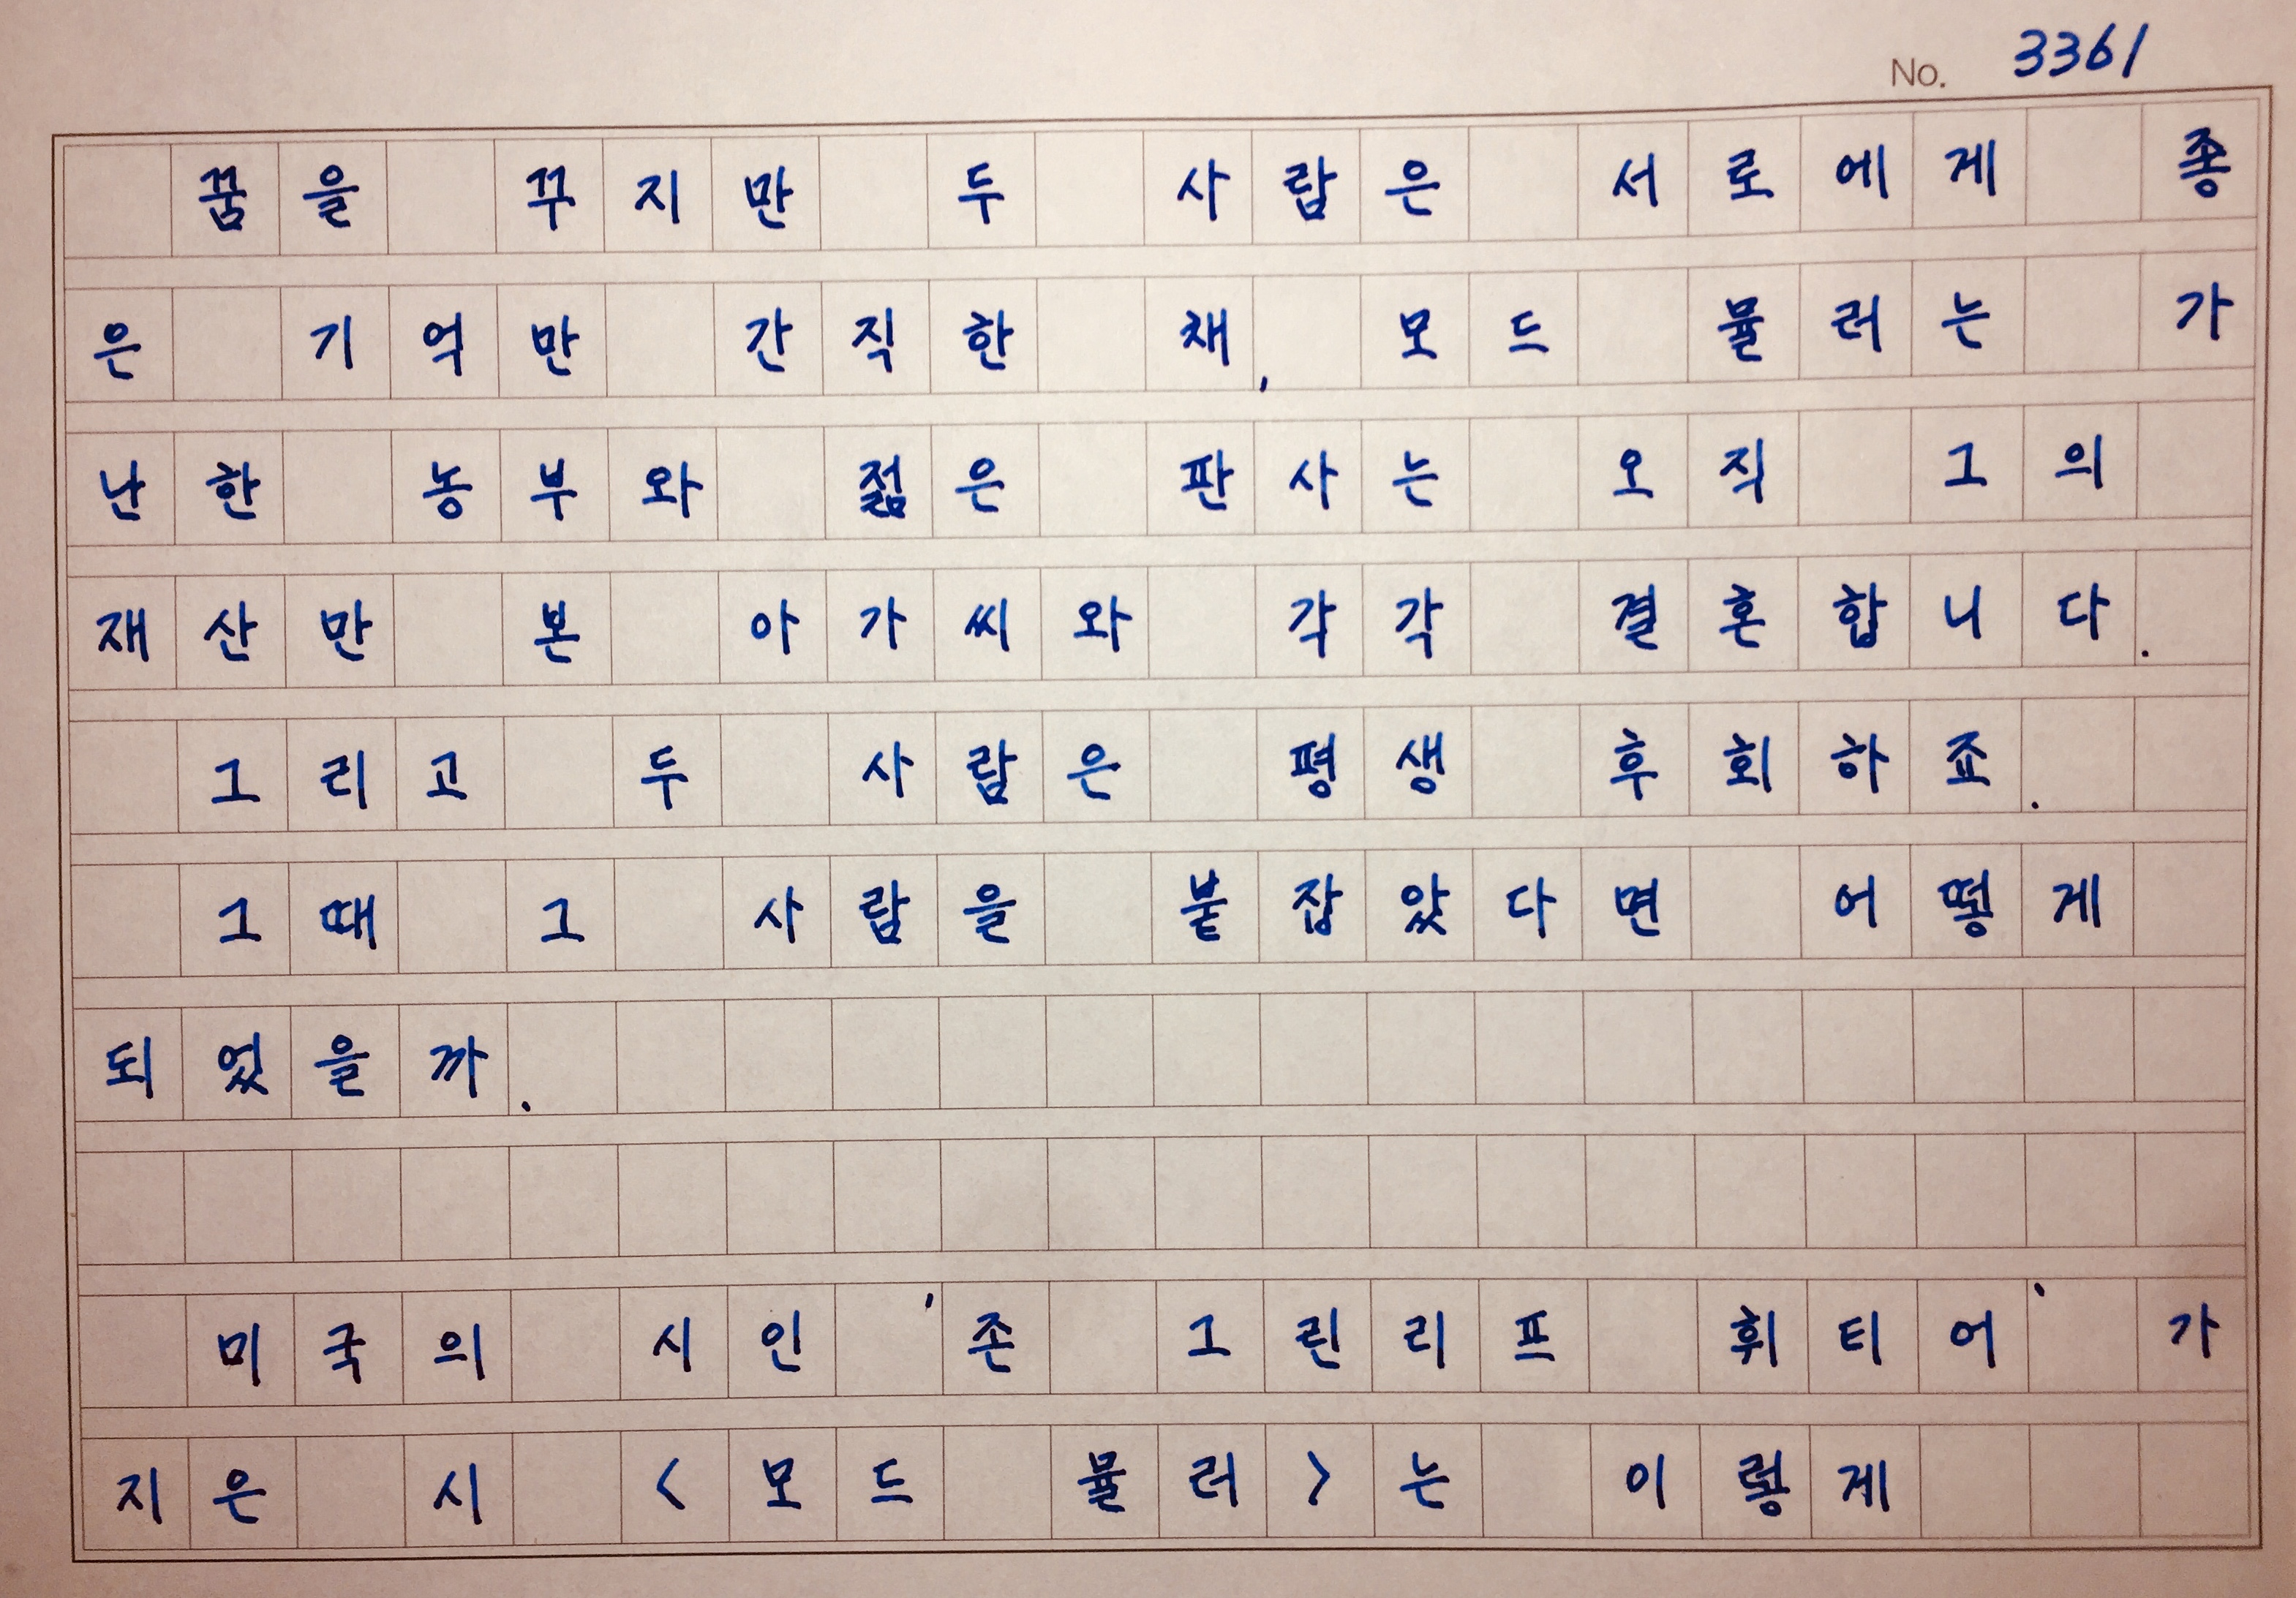 No. 3361
꿈을 꾸지만 두 사람은 서로에게 좋
은 기억만 간직한 채, 모드 뮬러는 가
난한 농부와 젊은 판사는 오직 그의
재산만 본 아가씨와 각각 결혼합니다.
그리고 두 사람은 평생 후회하죠.
그때 그 사람을 붙잡았다면 어떻게
되었을까.
미국의 시인 '존 그린리프 휘티어' 가
지은 시 <모드 뮬러>는 이렇게